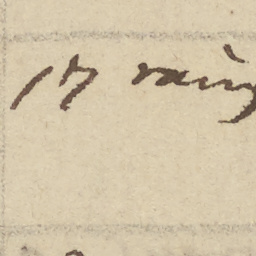 17 rainy